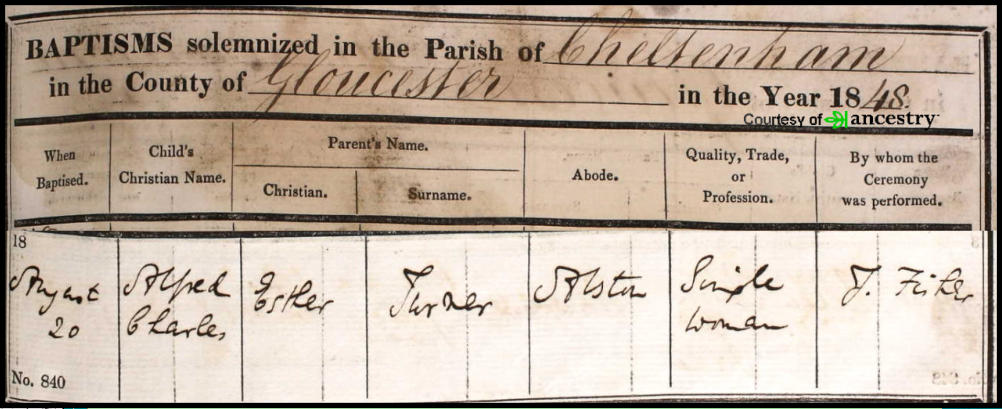 BAPTISMS solemnized in the Parish of Cheltenham
in the County of Gloucester in the Year 1848.
Courtesy of ancestry
When Baptised.
Child's Christian Name.
Parent's Name.
Christian.
Surname.
Abode.
Quality, Trade, or Profession.
By whom the Ceremony was performed.
18
August 20
Alfred Charles
Esther
Turner
Alston
Single woman
J. Fisher
No. 840